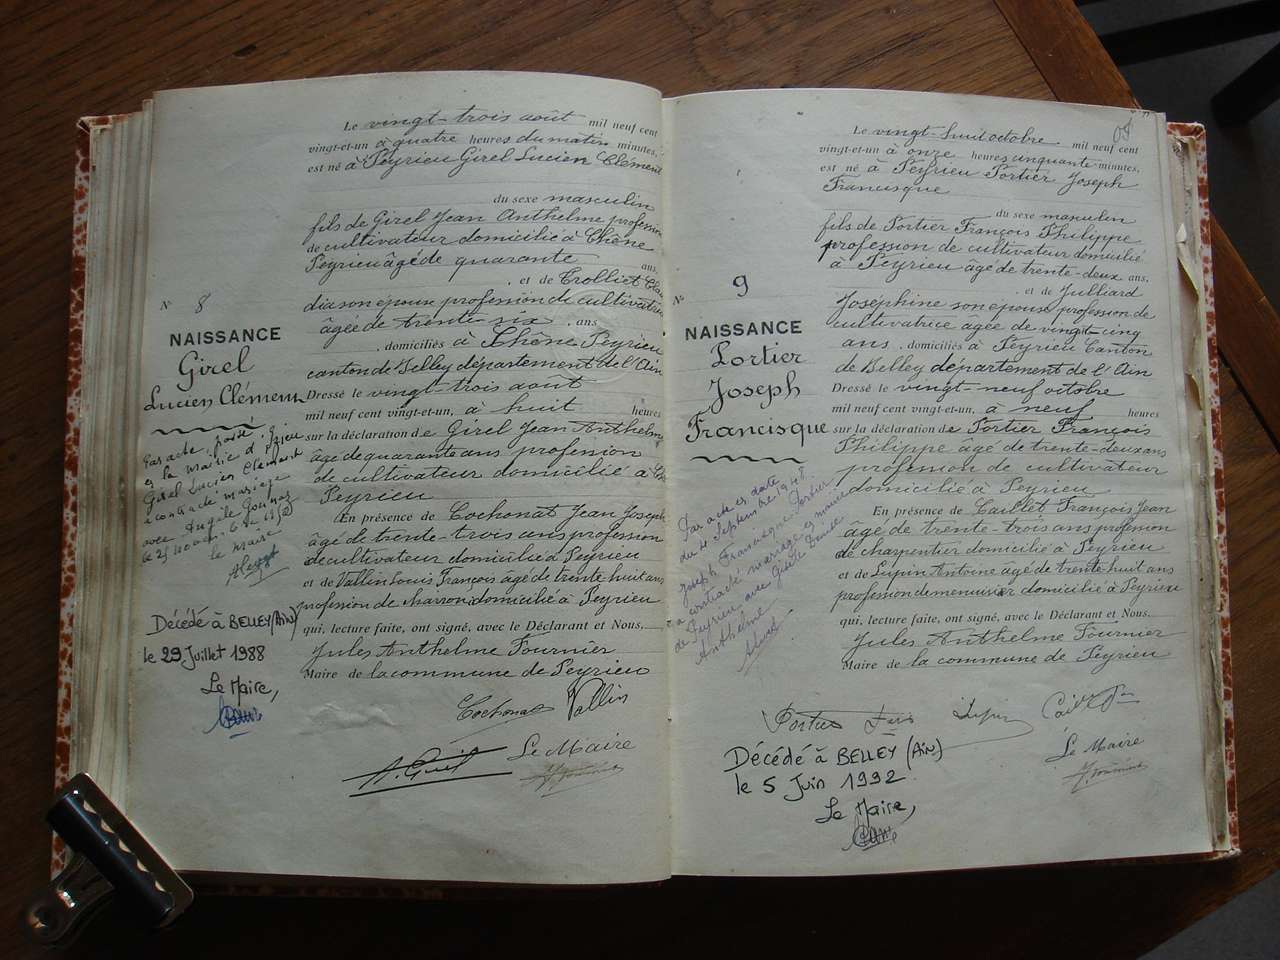 Le vingt-trois août mil neuf cent
vingt-et-un à quatre heures du matin minutes,
est né à Peyrieu Girel Lucien Clément
du sexe masculin
fils de Girel Jean Anthelme profession
de cultivateur domicilié à Chêne
Peyrieu âgé de quarante ans,
et de Trolliet Clau
dia son épouse profession de cultivatrice
âgée de trente-six ans
domiciliés à Chêne Peyrieu
canton de Belley département de l'Ain
Dressé le vingt-trois août
mil neuf cent vingt-et-un, à huit heures
sur la déclaration de Girel Jean Anthelme
âgé de quarante ans profession
de cultivateur domicilié à
Peyrieu
En présence de Cochonat Jean Joseph
âgé de trente-trois ans profession
de cultivateur domicilié à Peyrieu
et de Vallin Louis François âgé de trente huit ans
profession de charron domicilié à Peyrieu
qui, lecture faite, ont signé, avec le Déclarant et Nous,
Jules Anthelme Fournier
Maire de la commune de Peyrieu
Cochonat Vallin
Le Maire
N° 8
NAISSANCE
Girel
Lucien Clément
Par acte passé
en la mairie d'
Girel Lucien Clément
a contracté mariage
avec
le
le Maire
Décédé à BELLEY (Ain)
le 29 Juillet 1988
Le Maire,
Le vingt-huit octobre mil neuf cent
vingt-et-un à onze heures cinquante minutes,
est né à Peyrieu Portier Joseph
Francisque
du sexe masculin
fils de Portier François Philippe
profession de cultivateur domicilié
à Peyrieu âgé de trente-deux ans,
et de Julliard
Joséphine son épouse profession de
cultivatrice âgée de vingt-cinq
ans domiciliés à Peyrieu Canton
de Belley département de l'Ain
Dressé le vingt-neuf octobre
mil neuf cent vingt-et-un, à neuf heures
sur la déclaration de Portier François
Philippe âgé de trente-deux ans
profession de cultivateur
domicilié à Peyrieu
En présence de Caillet François Jean
âgé de trente-trois ans profession
de charpentier domicilié à Peyrieu
et de Lupin Antoine âgé de trente huit ans
profession de menuisier domicilié à Peyrieu
qui, lecture faite, ont signé, avec le Déclarant et Nous,
Jules Anthelme Fournier
Maire de la commune de Peyrieu
Portier Lupin
Le Maire
N° 9
NAISSANCE
Portier
Joseph
Francisque
Par acte en date
du 4 Septembre 1948
Joseph Francisque Portier
a contracté mariage en mairie
de Peyrieu avec Denise
Anthelme
Décédé à BELLEY (Ain)
le 5 Juin 1992
Le Maire,